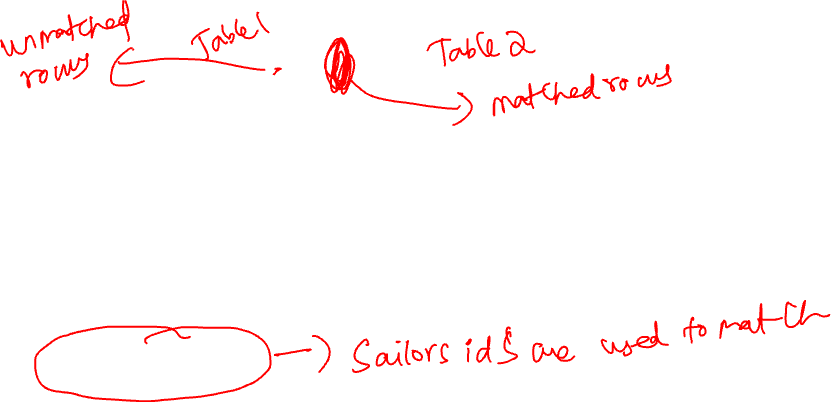 unmatched
rows
Table1
Table 2
matched rows
Sailors ids are used to match